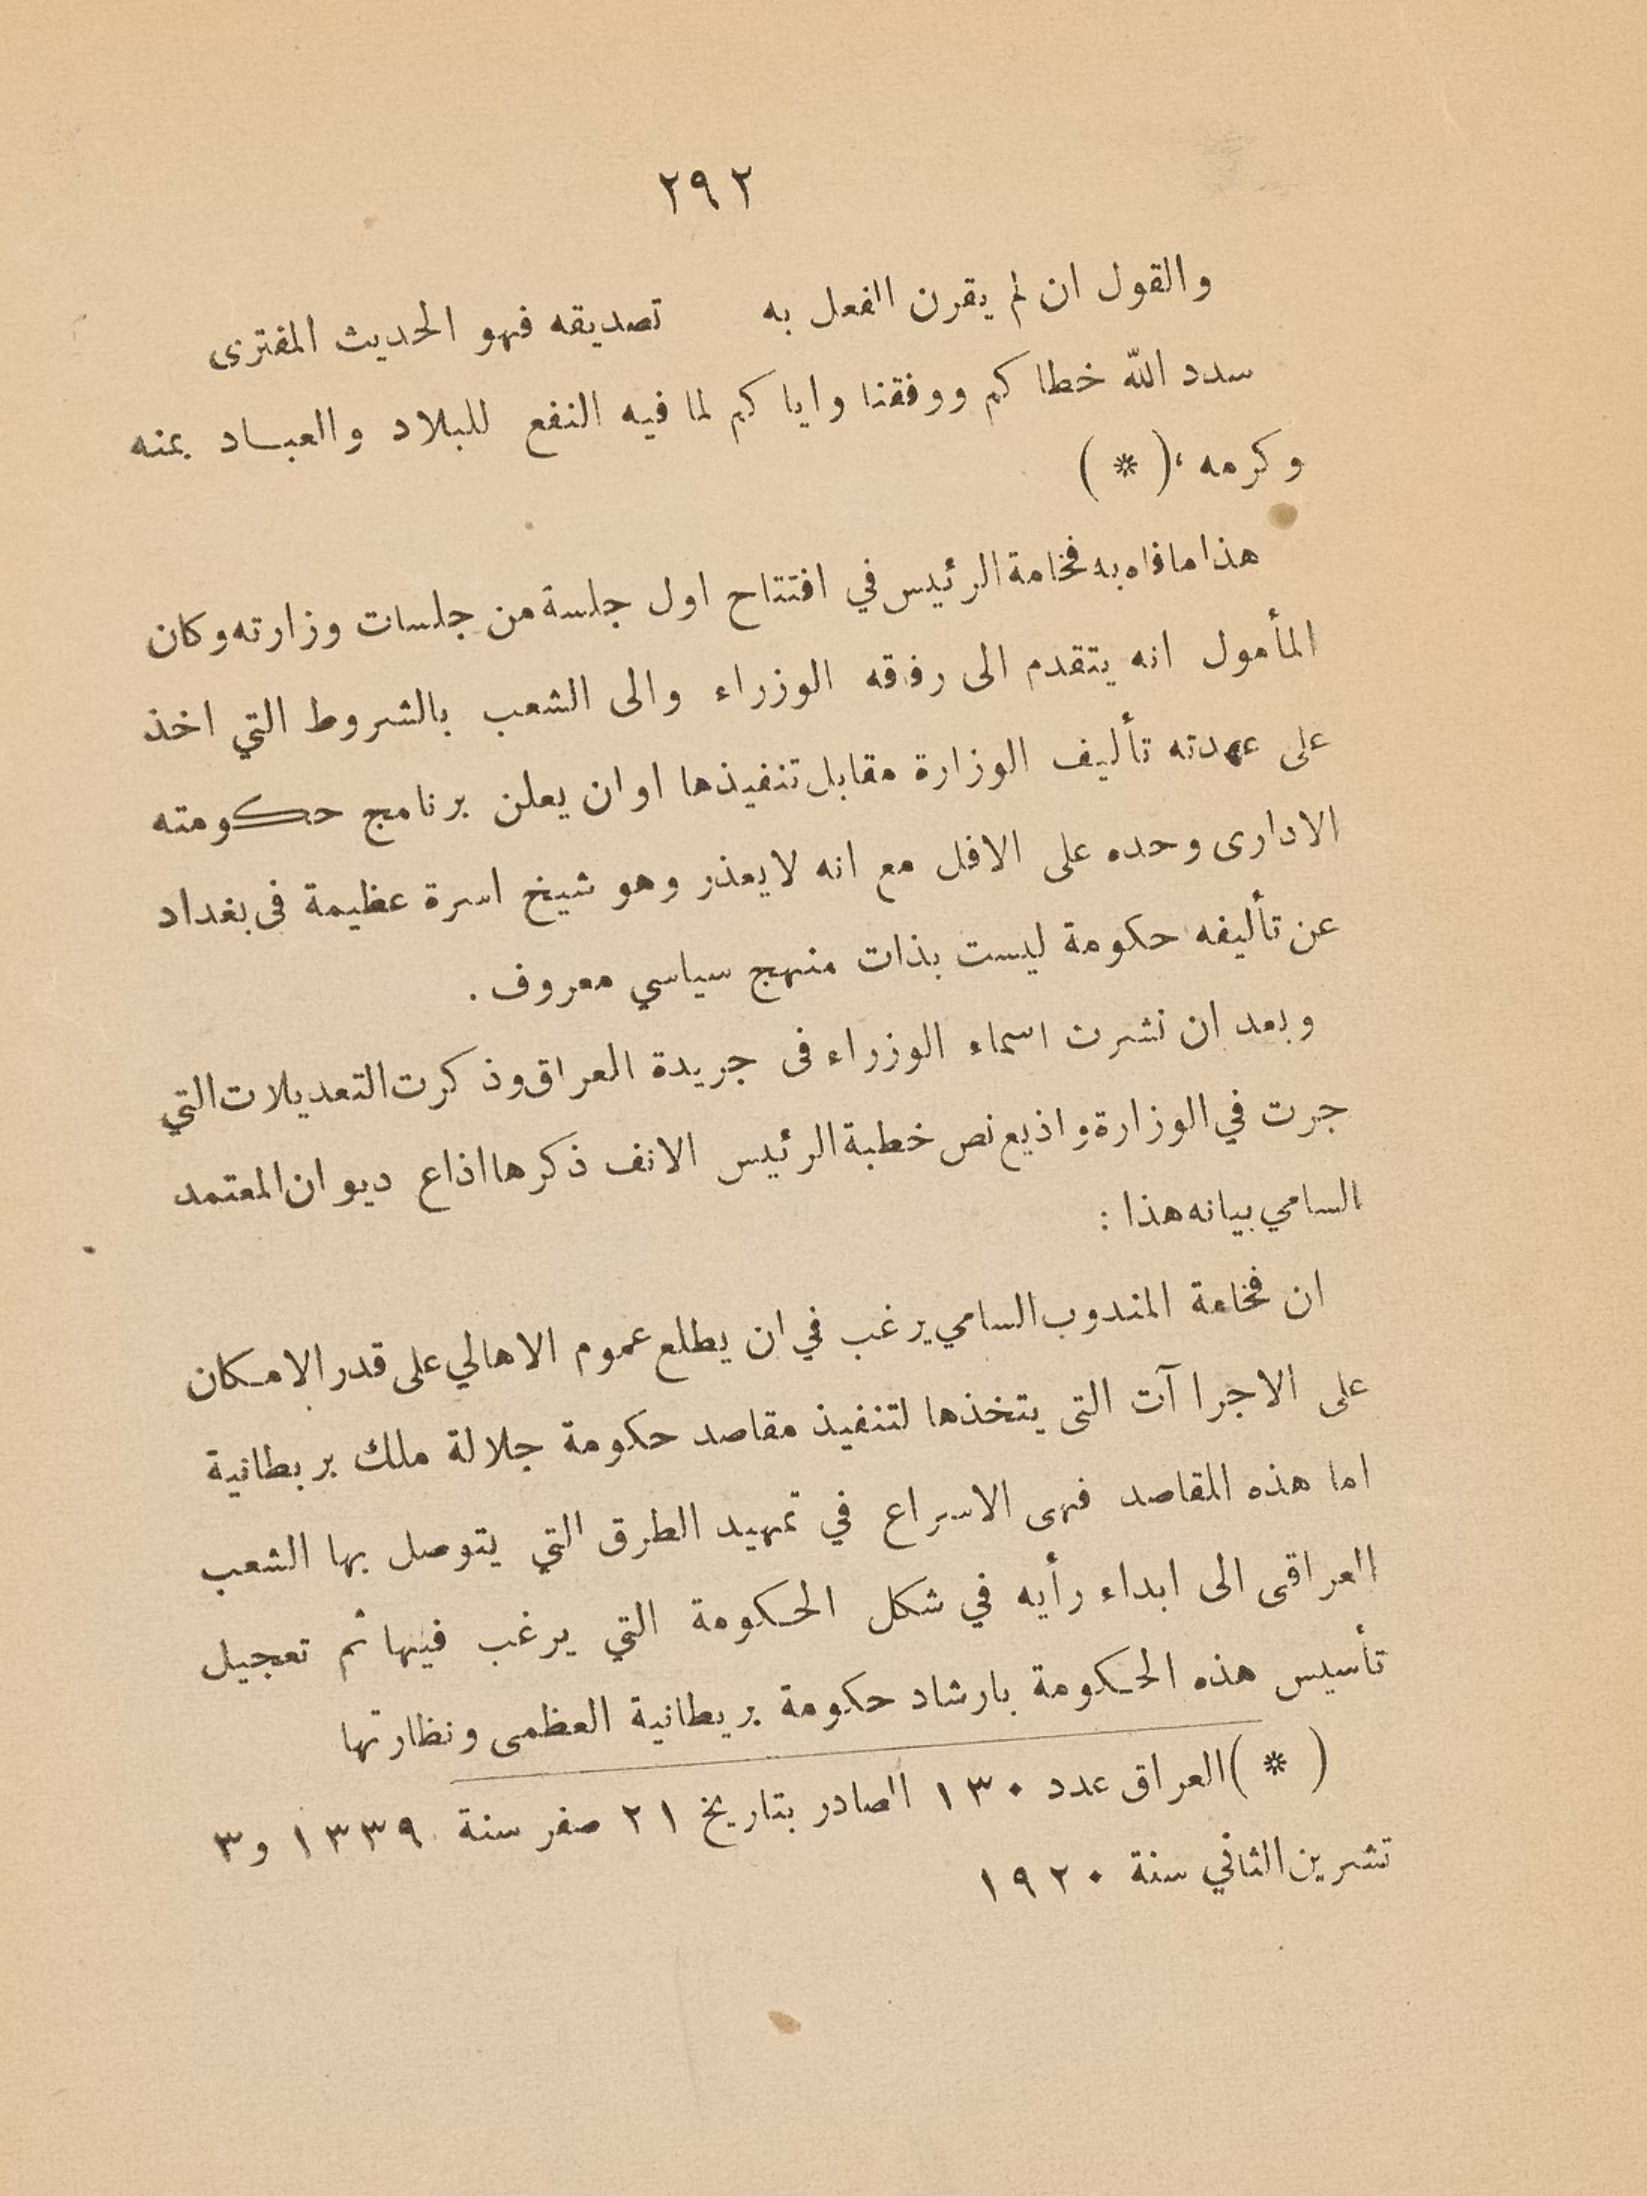 ٢٩٢
والقول ان لم يقرن الفعل به تصديقه فهو الحديث المفترى
سدد الله خطاكم ووفقنا واياكم لما فيه النفع للبلاد والعباد بمنه
وكرمه ، ( * )
هذا ما فاه به فخامة الرئيس في افتتاح اول جلسة من جلسات وزارته وكان
المأمول انه يتقدم الى رفقه الوزراء والى الشعب بالشروط التي اخذ
على عهدته تأليف الوزارة مقابل تنفيذها او ان يعلن برنامج حكومته
الادارى وحده على الاقل مع انه لا يعذر وهو شيخ اسرة عظيمة فى بغداد
عن تأليفه حكومة ليست بذات منهج سياسي معروف .
وبعد ان نشرت اسماء الوزراء فى جريدة العراق وذكرت التعديلات التي
جرت في الوزارة واذيع نص خطبة الرئيس الانف ذكرها اذاع ديوان المعتمد
السامي بيانه هذا :
ان فخامة المندوب السامي يرغب في ان يطلع عموم الاهالي على قدر الامكان
على الاجراآت التى يتخذها لتنفيذ مقاصد حكومة جلالة ملك بربطانية
اما هذه المقاصد فهى الاسراع في تمهيد الطرق التي يتوصل بها الشعب
العراقى الى ابداء رأيه في شكل الحكومة التي يرغب فيها ثم تعجيل
تأسيس هذه الحكومة بارشاد حكومة بريطانية العظمى ونظارتها
( * ) العراق عدد ١٣٠ الصادر بتاريخ ٢١ صفر سنة ١٣٣٩ و٣
تشرين الثاني سنة ١٩٢٠